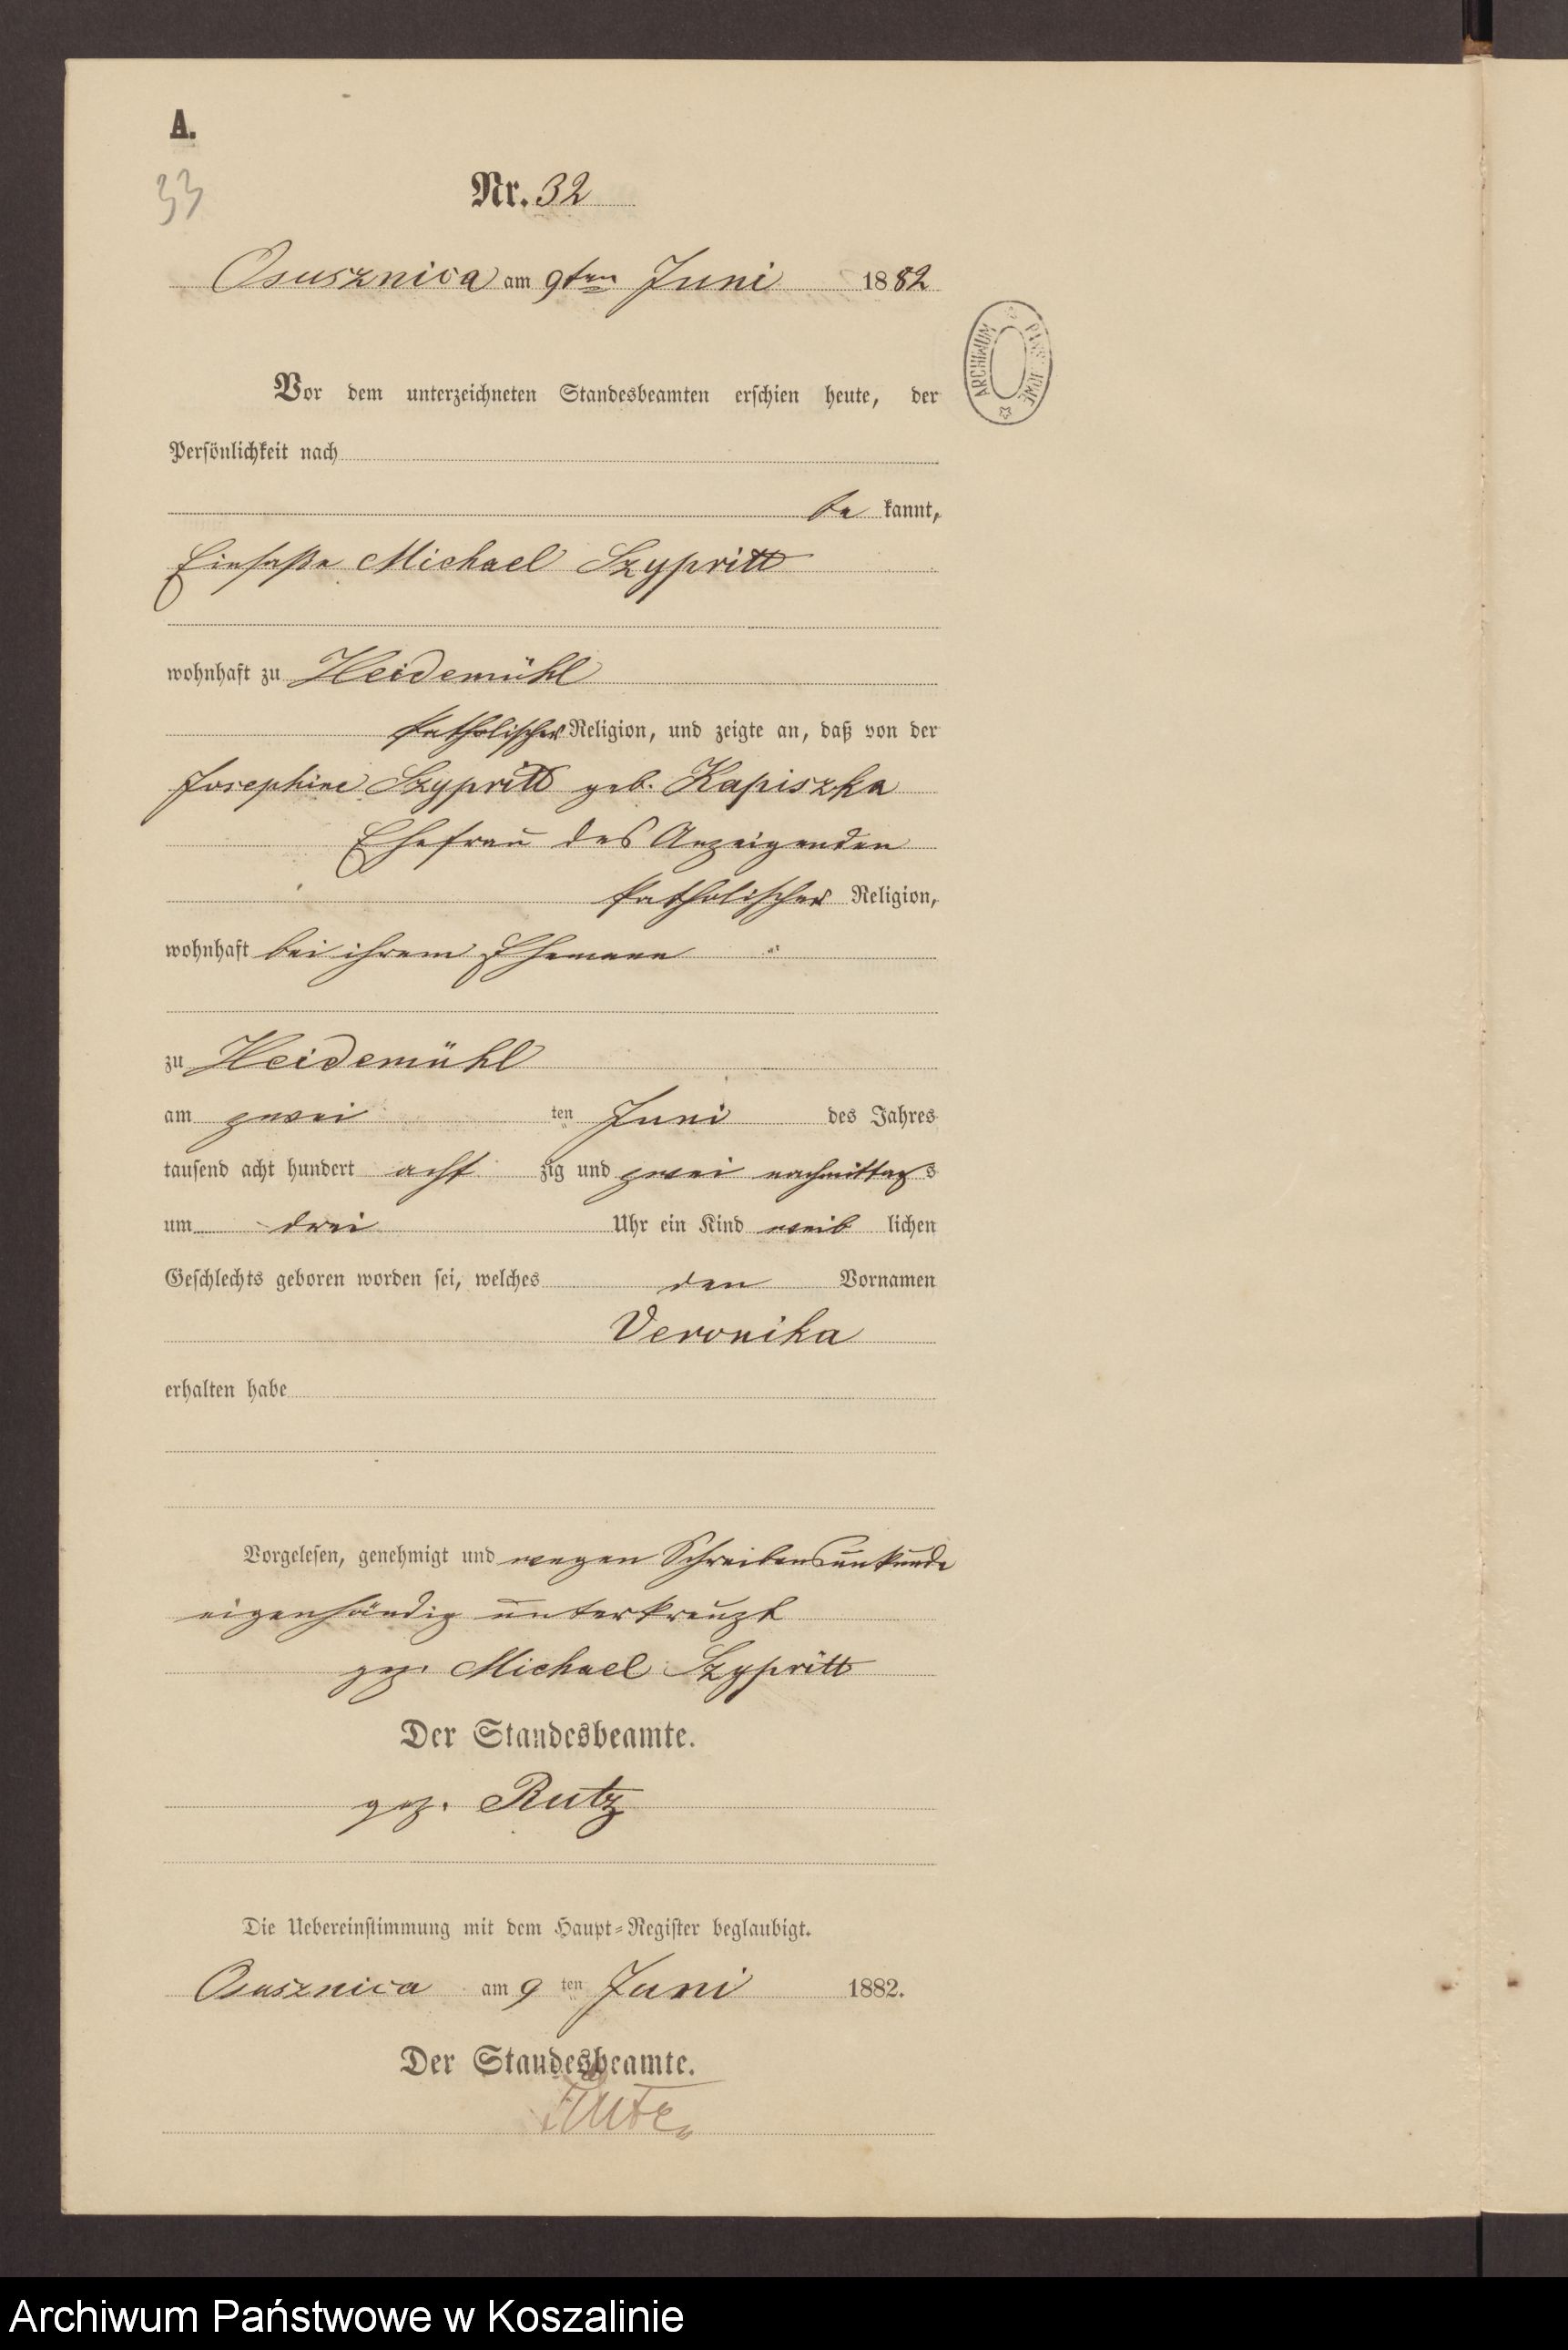 A.
33
Nr. 32
Osusznica am 9ten Juni 1882
Vor dem unterzeichneten Standesbeamten erschien heute, der
Persönlichkeit nach
be kannt,
Einsaße Michael Szypritt
wohnhaft zu Heidemühl
katholischer Religion, und zeigte an, daß von der
Josephine Szypritt geb. Kapiszka
Ehefrau des Anzeigenden
katholischer Religion,
wohnhaft bei ihrem Ehemann
zu Heidemühl
am zwei ten Juni des Jahres
tausend acht hundert acht zig und zwei nachmittags
um drei Uhr ein Kind weib lichen
Geschlechts geboren worden sei, welches den Vornamen
Veronika
erhalten habe
Vorgelesen, genehmigt und wegen Schreibensunkunde
eigenhändig unterkreuzt
gez. Michael Szypritt
Der Standesbeamte.
gez. Rutz
Die Uebereinstimmung mit dem Haupt-Register beglaubigt.
Osusznica am 9 ten Juni 1882.
Der Standesbeamte.
Rutz
ARCHIWUM
Archiwum Państwowe w Koszalinie